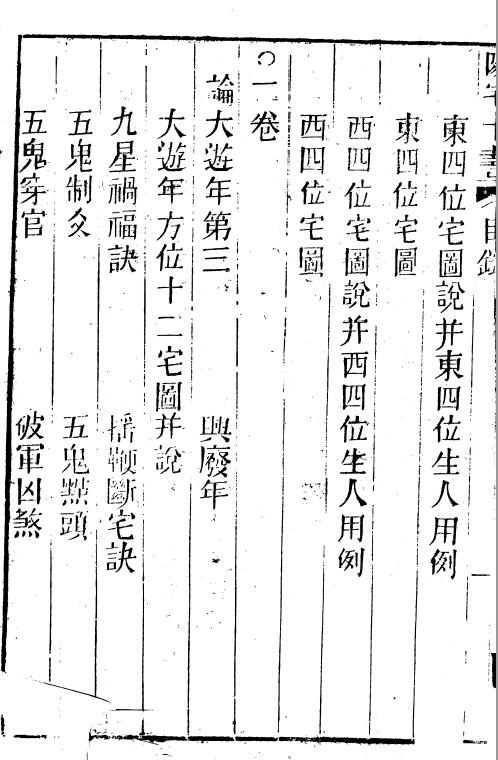 東四位宅圖說并東四位生人用例
東四位宅圖
西四位宅圖說并西四位生人用例
西四位宅圖
一卷
論大遊年第三 興廢年
大遊年方位十二宅圖并說
九星禍福訣 摇鞭斷宅訣
五鬼制爻 五鬼㸃頭
五鬼穿宫 破軍凶煞